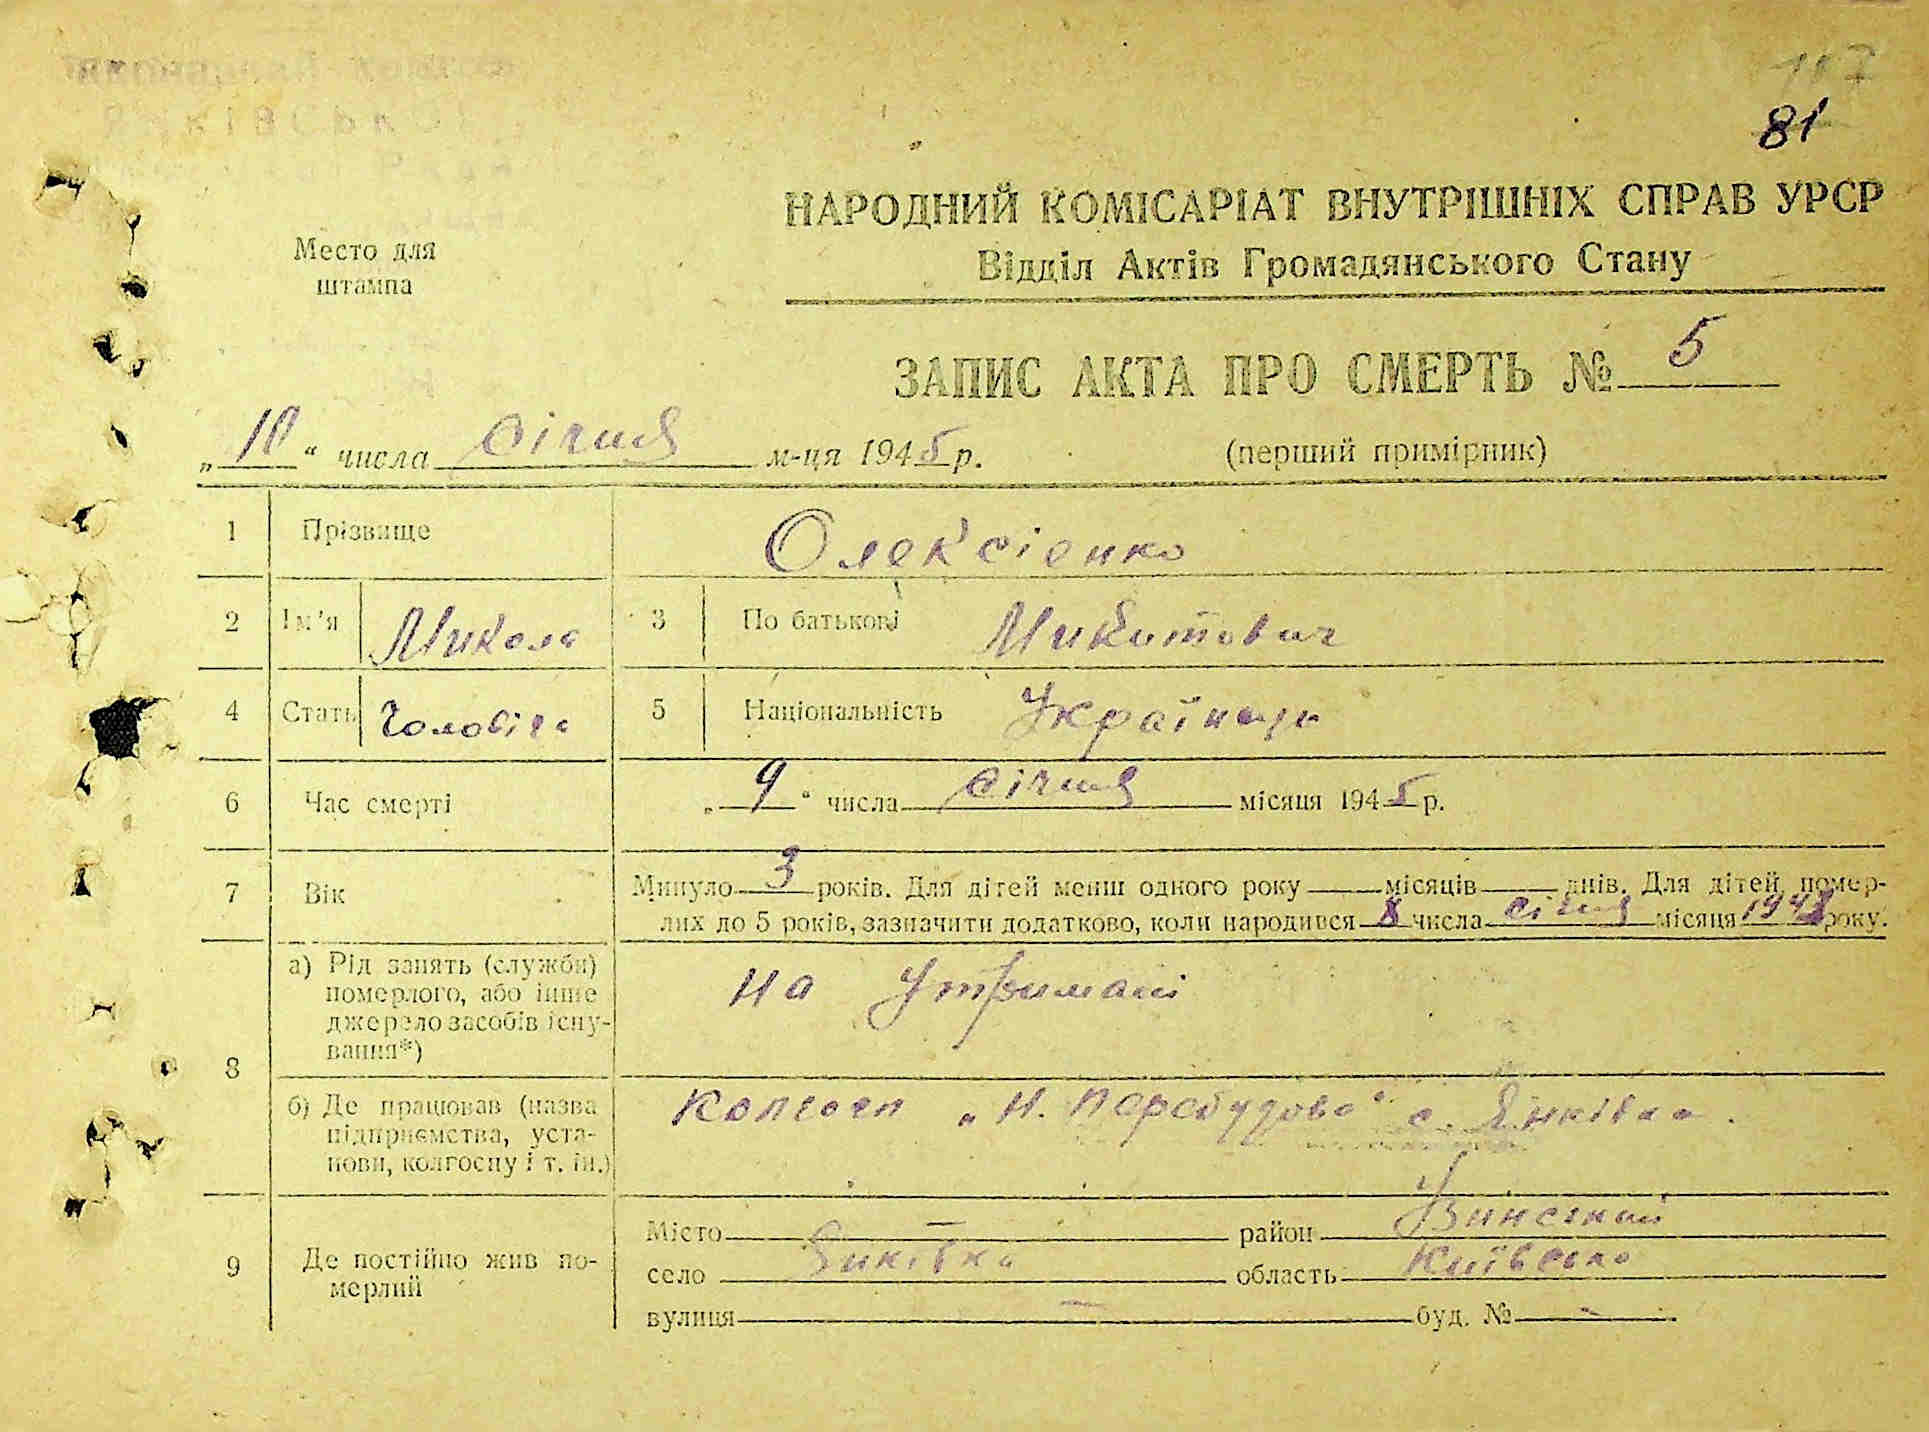 117
81
НАРОДНИЙ КОМІСАРІАТ ВНУТРІШНІХ СПРАВ УРСР
Відділ Актів Громадянського Стану
Место для
штампа
ЗАПИС АКТА ПРО СМЕРТЬ № 5
„10“ числа січня м-ця 1945 р. (перший примірник)
1 Прізвище Олексієнко
2 Ім'я Микола 3 По батькові Микитович
4 Стать Чоловіча 5 Національність Українець
6 Час смерті „9“ числа січня місяця 1945 р.
7 Вік Минуло 3 років. Для дітей менш одного року — місяців — днів. Для дітей, помер-
лих до 5 років, зазначити додатково, коли народився 8 числа січня місяця 194 року.
8 а) Рід занять (служби)
померлого, або інше
джерело засобів існу-
вання*) На Утримані
б) Де працював (назва
підприємства, уста-
нови, колгоспу і т. ін.) Колгосп „Н. Перебудова“ с. Янківка.
9 Де постійно жив по-
мерлий
Місто — район
село Янківка область Київська
вулиця — буд. № -